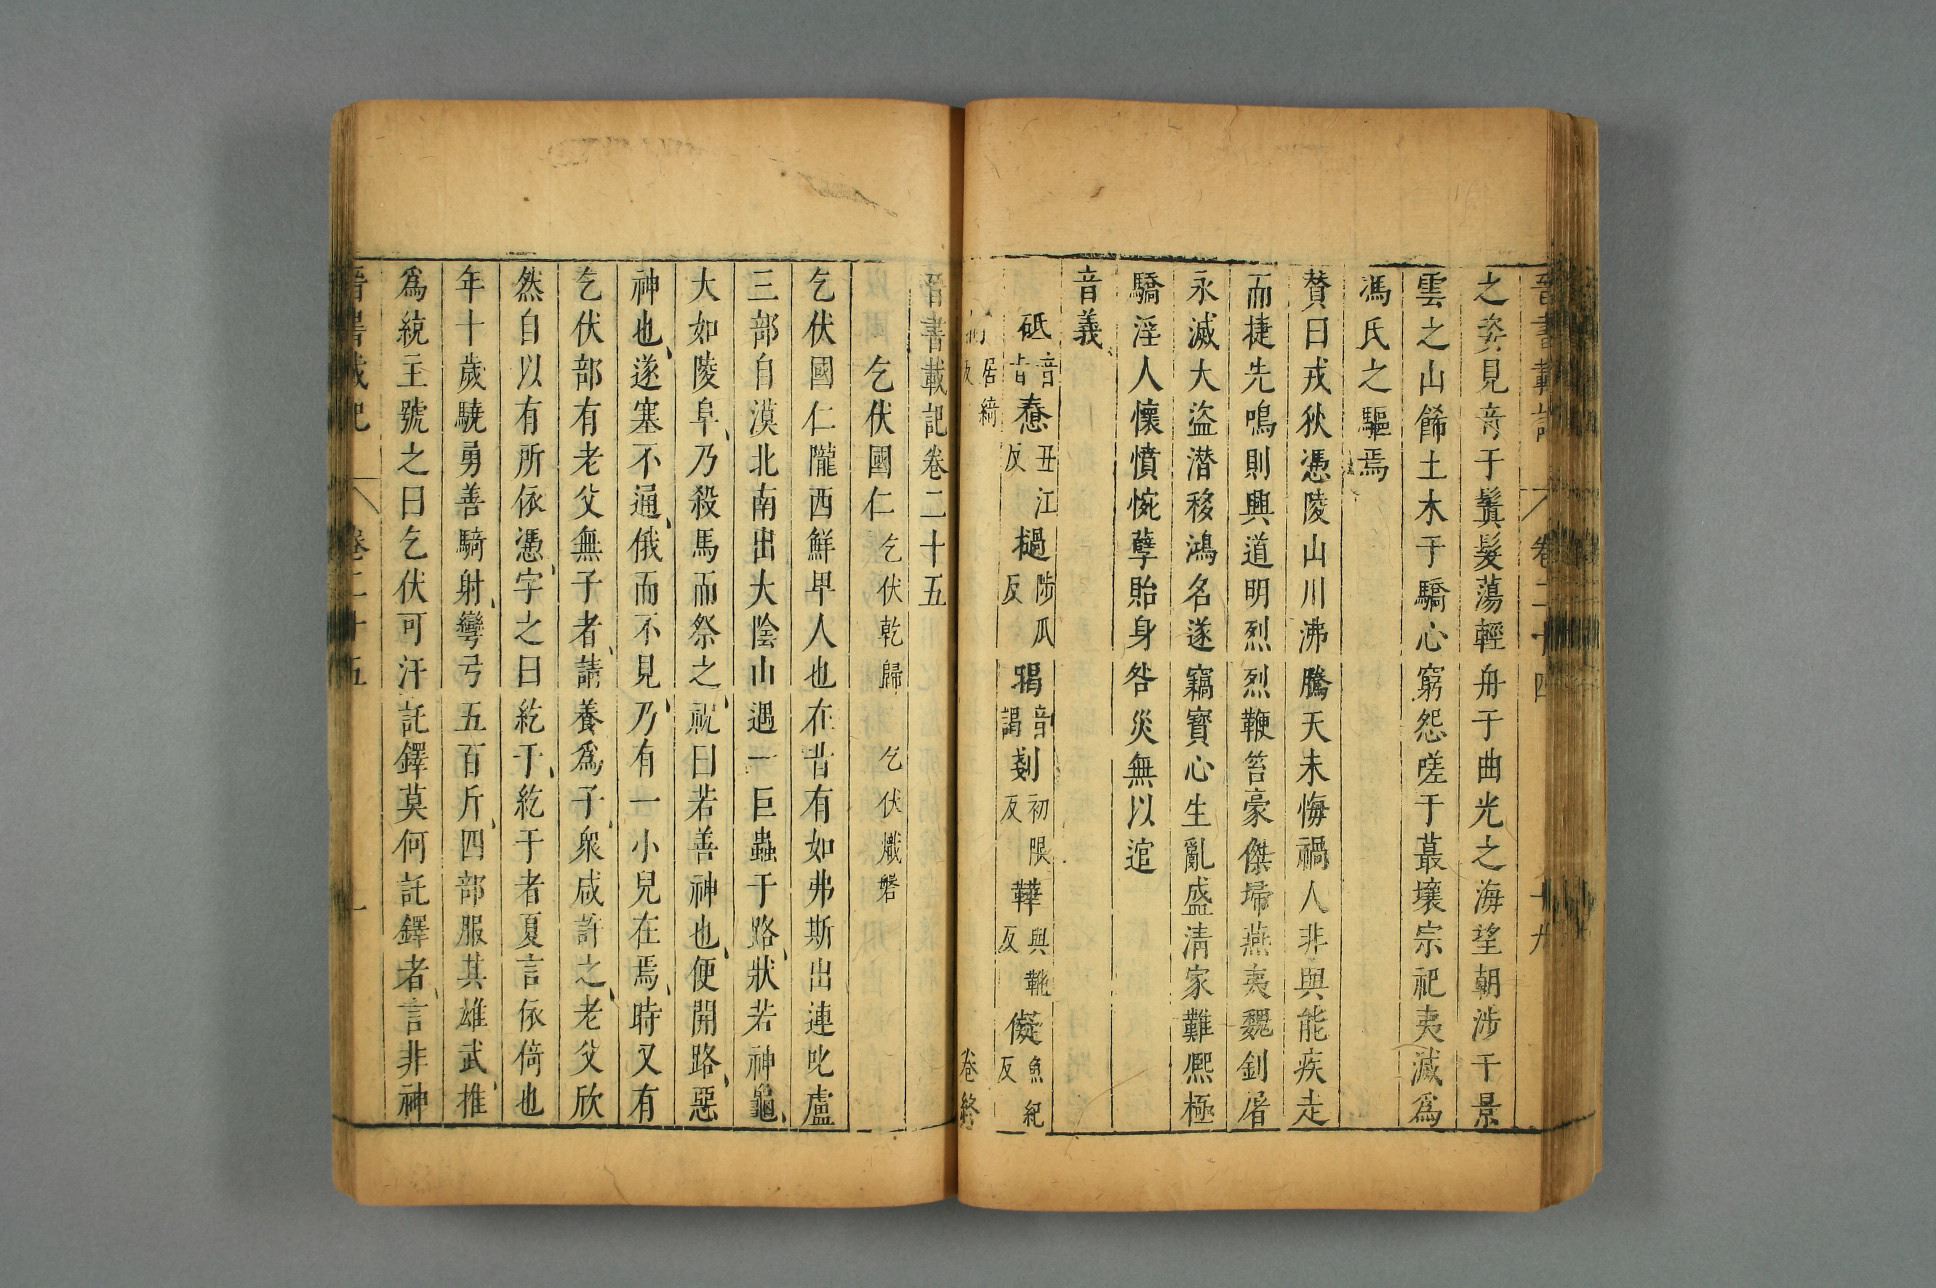 晉書載記 卷二十四 十九
之姿見奇于鬒髮蕩輕舟于曲光之海望朝涉于景
雲之山餙土木于驕心窮怨嗟于蕞壤宗祀夷滅爲
馮氏之驅焉
贊曰戎狄憑陵山川沸騰天未悔禍人非與能疾走
而捷先鳴則興道明烈烈鞭笞豪傑掃燕夷魏釗屠
永滅大盜潛移鴻名遂竊寶心生亂盛清家難熈極
驕淫人懷憤惋孽貽身咎災無以逭
音義
砥音旨惷丑江反檛陟瓜反猲音謁剗初限反鞾與靴反儗魚紀反
居綺反 卷終
晉書載記卷二十五
乞伏國仁 乞伏乾歸 乞伏熾磐
乞伏國仁隴西鮮卑人也在昔有如弗斯出連叱盧
三部自漠北南出大陰山遇一巨蟲于路狀若神龜
大如陵阜乃殺馬而祭之祝曰若善神也便開路惡
神也遂塞不通俄而不見乃有一小兒在焉時又有
乞伏部有老父無子者請養爲子衆咸許之老父欣
然自以有所依憑字之曰紇干紇干者夏言依倚也
年十歲驍勇善騎射彎弓五百斤四部服其雄武推
爲統主號之曰乞伏可汗託鐸莫何託鐸者言非神
晉書載記 卷二十五 一